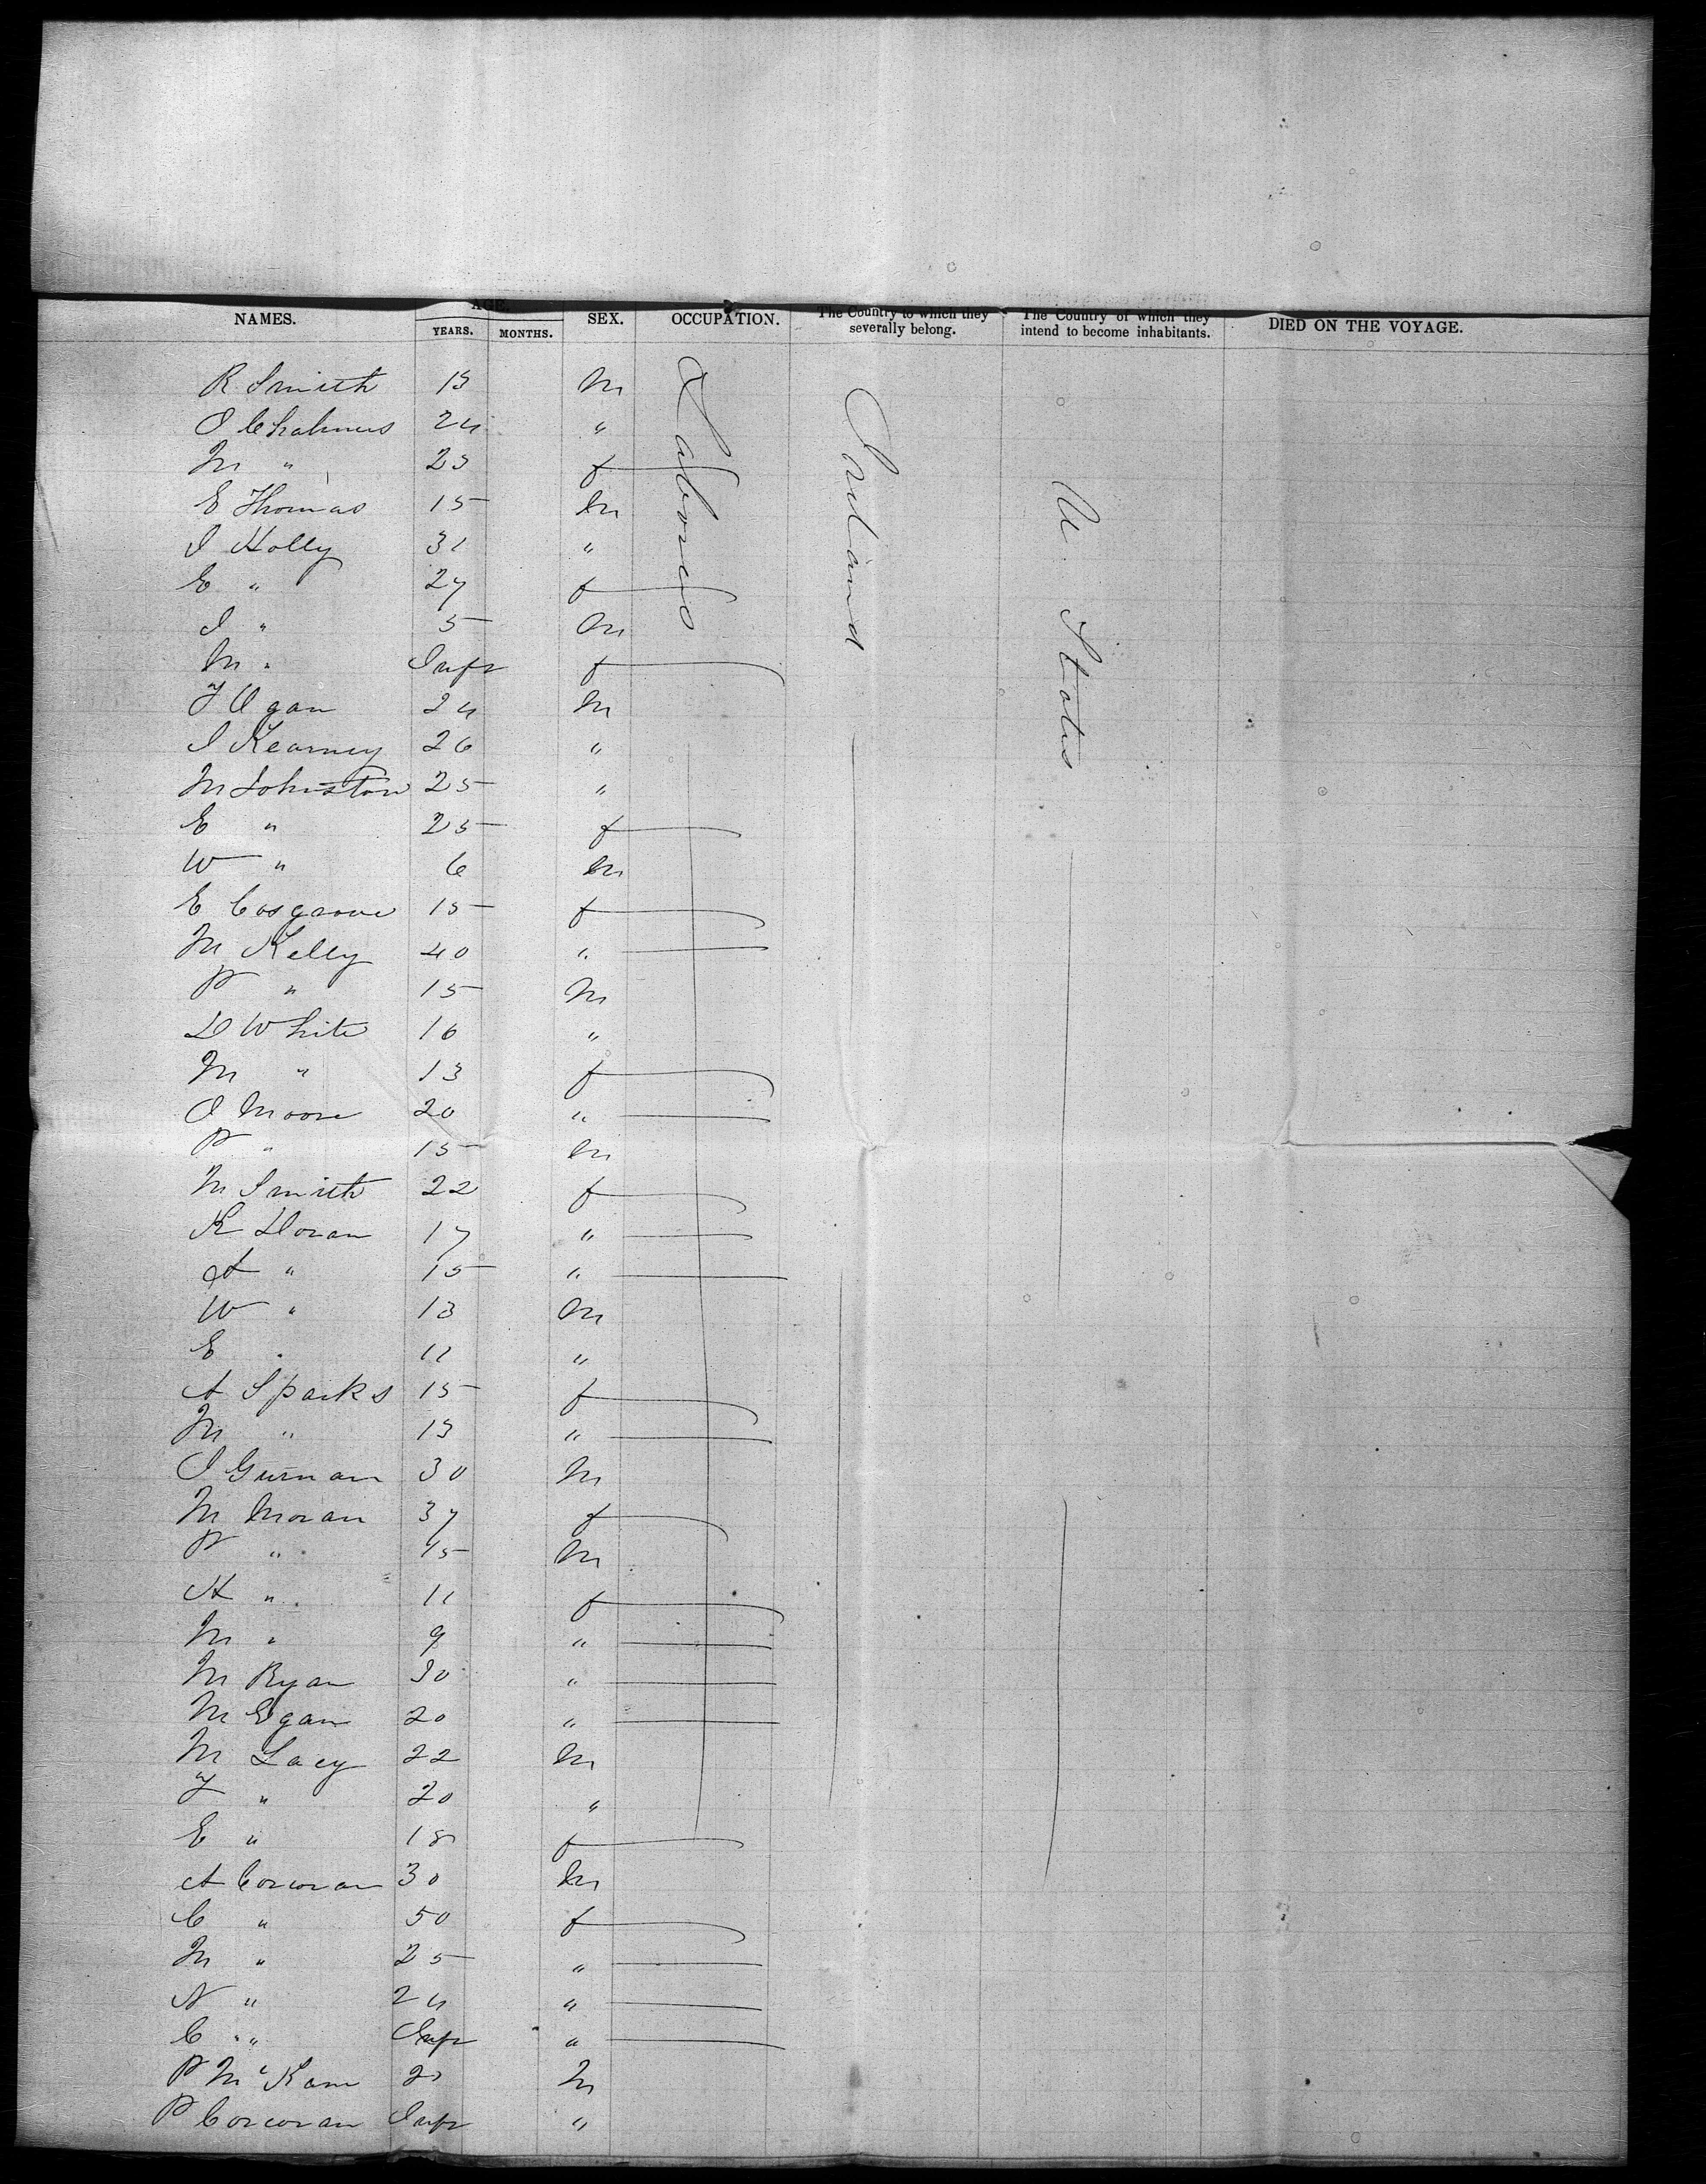 NAMES. AGE. YEARS. MONTHS. SEX. OCCUPATION. The Country to which they severally belong. The Country of which they intend to become inhabitants. DIED ON THE VOYAGE.
Laborers
Ireland
U. States
R Smith 13 M
J Chalmers 24 "
M " 23 f
E Thomas 15 M
J Holly 31 "
E " 27 f
J " 5 M
M " Inft f
T Egan 24 M
J Kearney 26 "
M Johnston 25 "
E " 25 f
W " 6 M
E Cosgrove 15 f
M Kelly 40 "
P " 15 M
D White 16 "
M " 13 f
J Moore 20 "
P " 15 M
M Smith 22 f
K Doran 17 "
A " 15 "
W " 13 M
E " 11 "
A Sparks 15 f
M " 13 "
J 30 M
M Moran 37 f
P " 15 M
A " 11 f
M " 9 "
M Ryan 30 "
M Egan 20 "
M Lacy 22 M
T " 20 "
E " 18 f
A Corcoran 30 M
C " 50 f
M " 25 "
N " 24 "
C " Inft "
P McKane M
P Corcoran Inft "